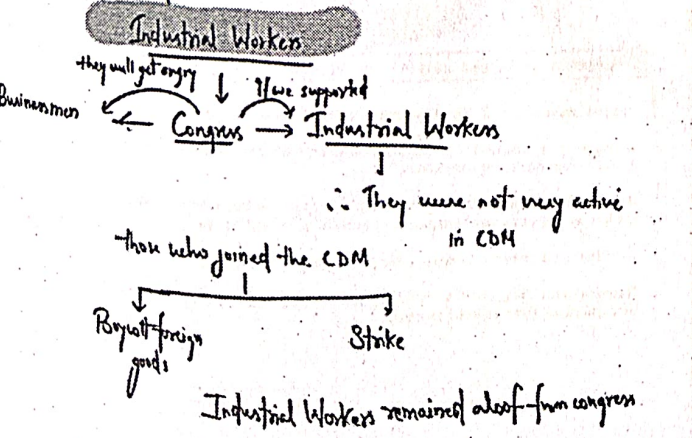 Industrial Workers
they will get angry
If we supported
Businessmen ← Congress → Industrial Workers
∴ They were not very active
in CDM
those who joined the CDM
Boycott foreign
goods
Strike
Industrial Workers remained aloof from congress